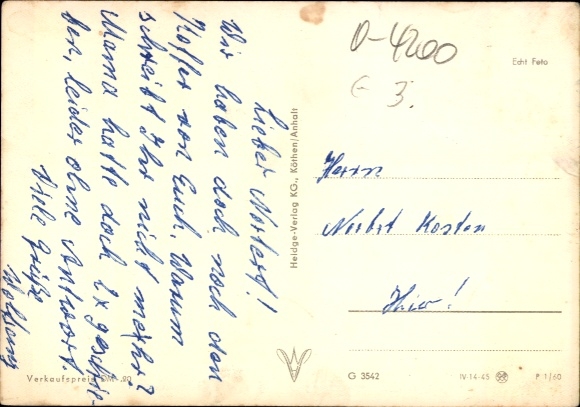 Lieber Norbert!
Wir haben doch noch den
Koffer von Euch. Warum
schreibt Ihr nicht mehr?
Mama hatte doch 2x geschrie-
ben, leider ohne Antwort.
Viele Grüße
Wolfgang
Heldge-Verlag KG., Köthen/Anhalt
D-4200
G 3.
Echt Foto
Herrn
Norbert Kosten
Hier!
Verkaufspreis DM -.20
G 3542
IV-14-45
P 1/60